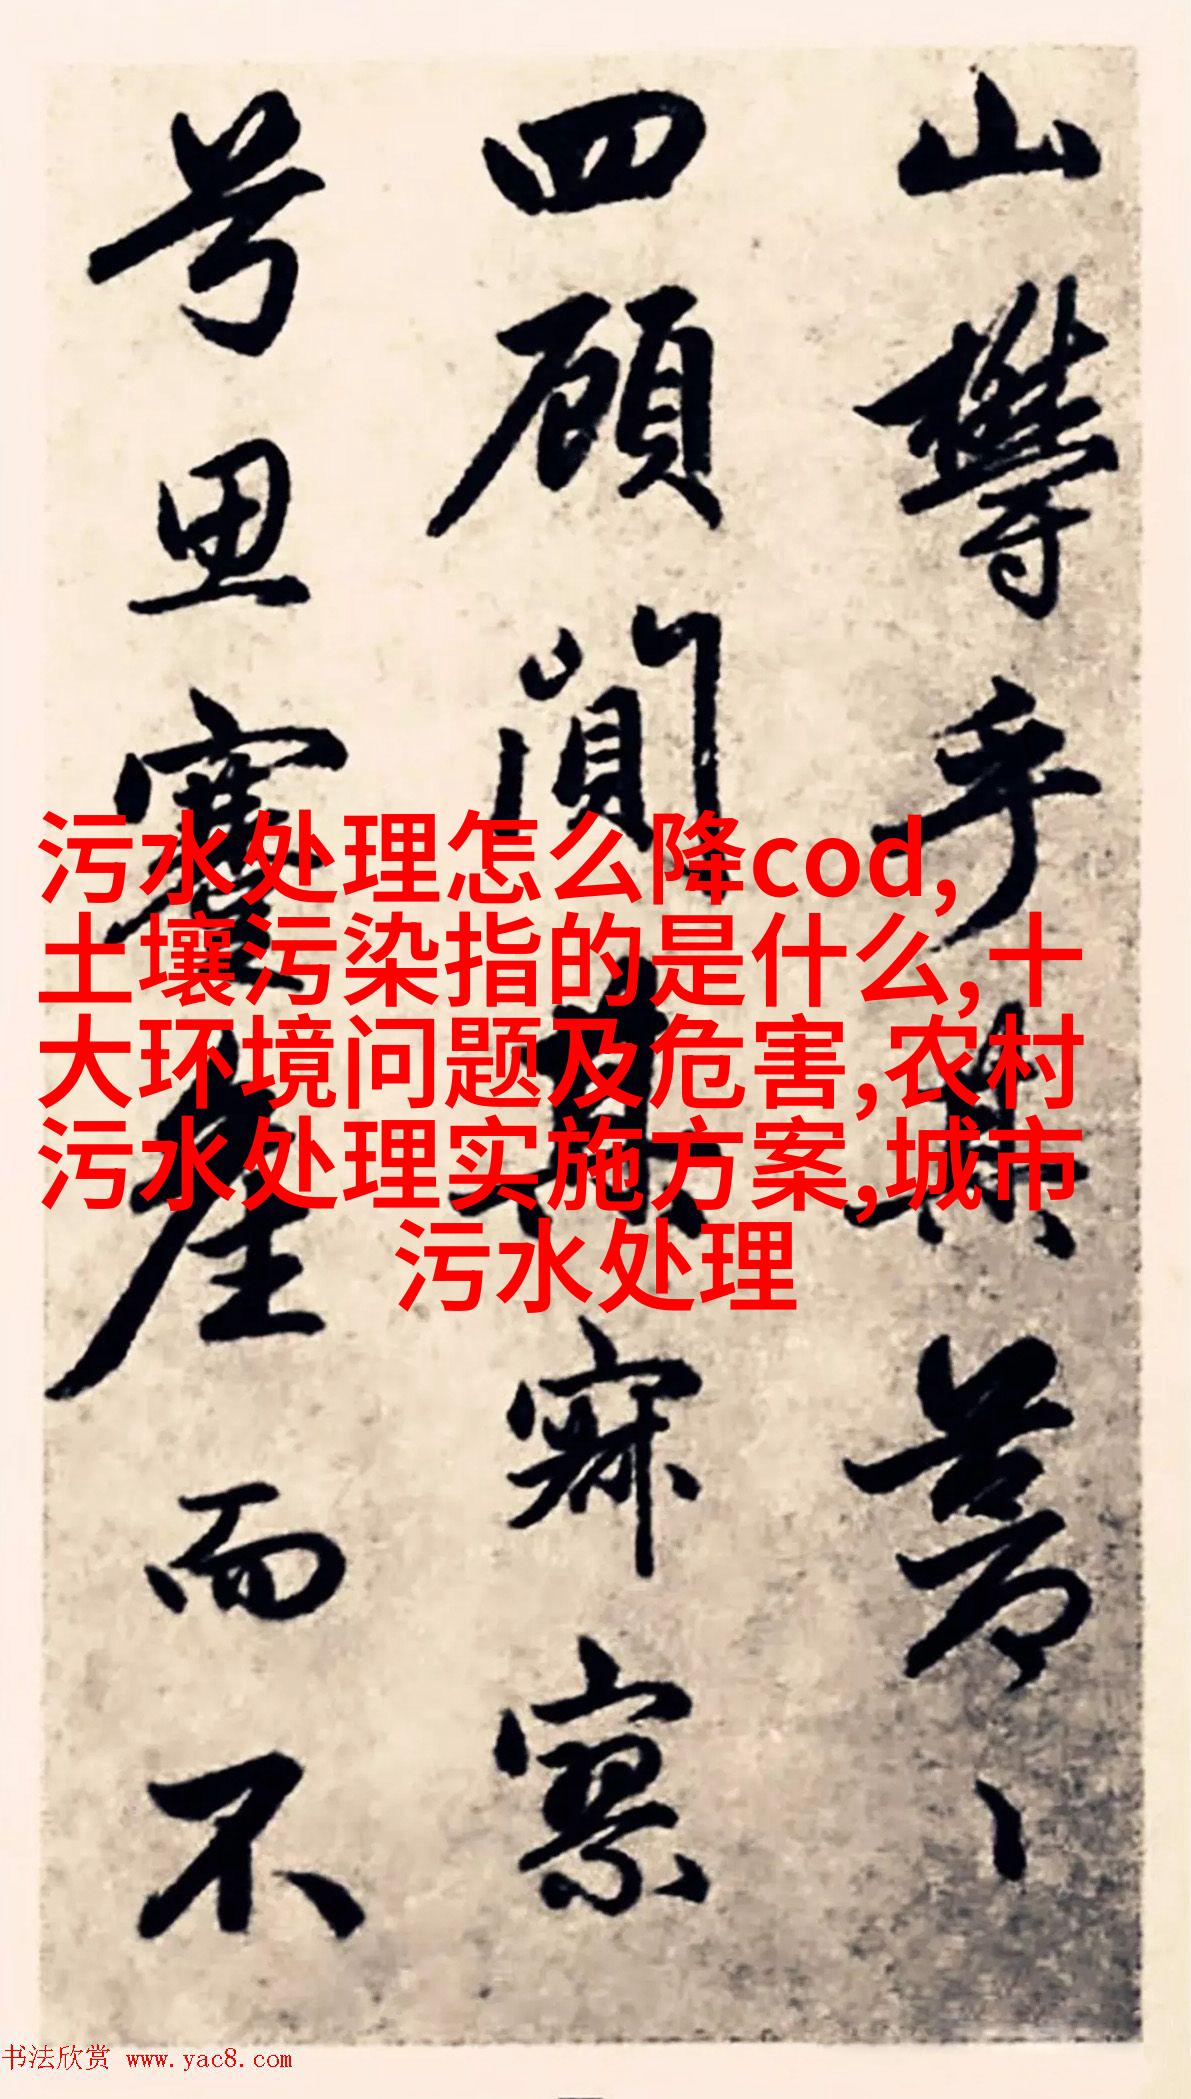 山欝乎其蒼〻
四顧闃其寂寥
兮思蹇產而不
污水处理怎么降cod,
土壤污染指的是什么,十
大环境问题及危害,农村
污水处理实施方案,城市
污水处理
书法欣赏 www.yac8.com